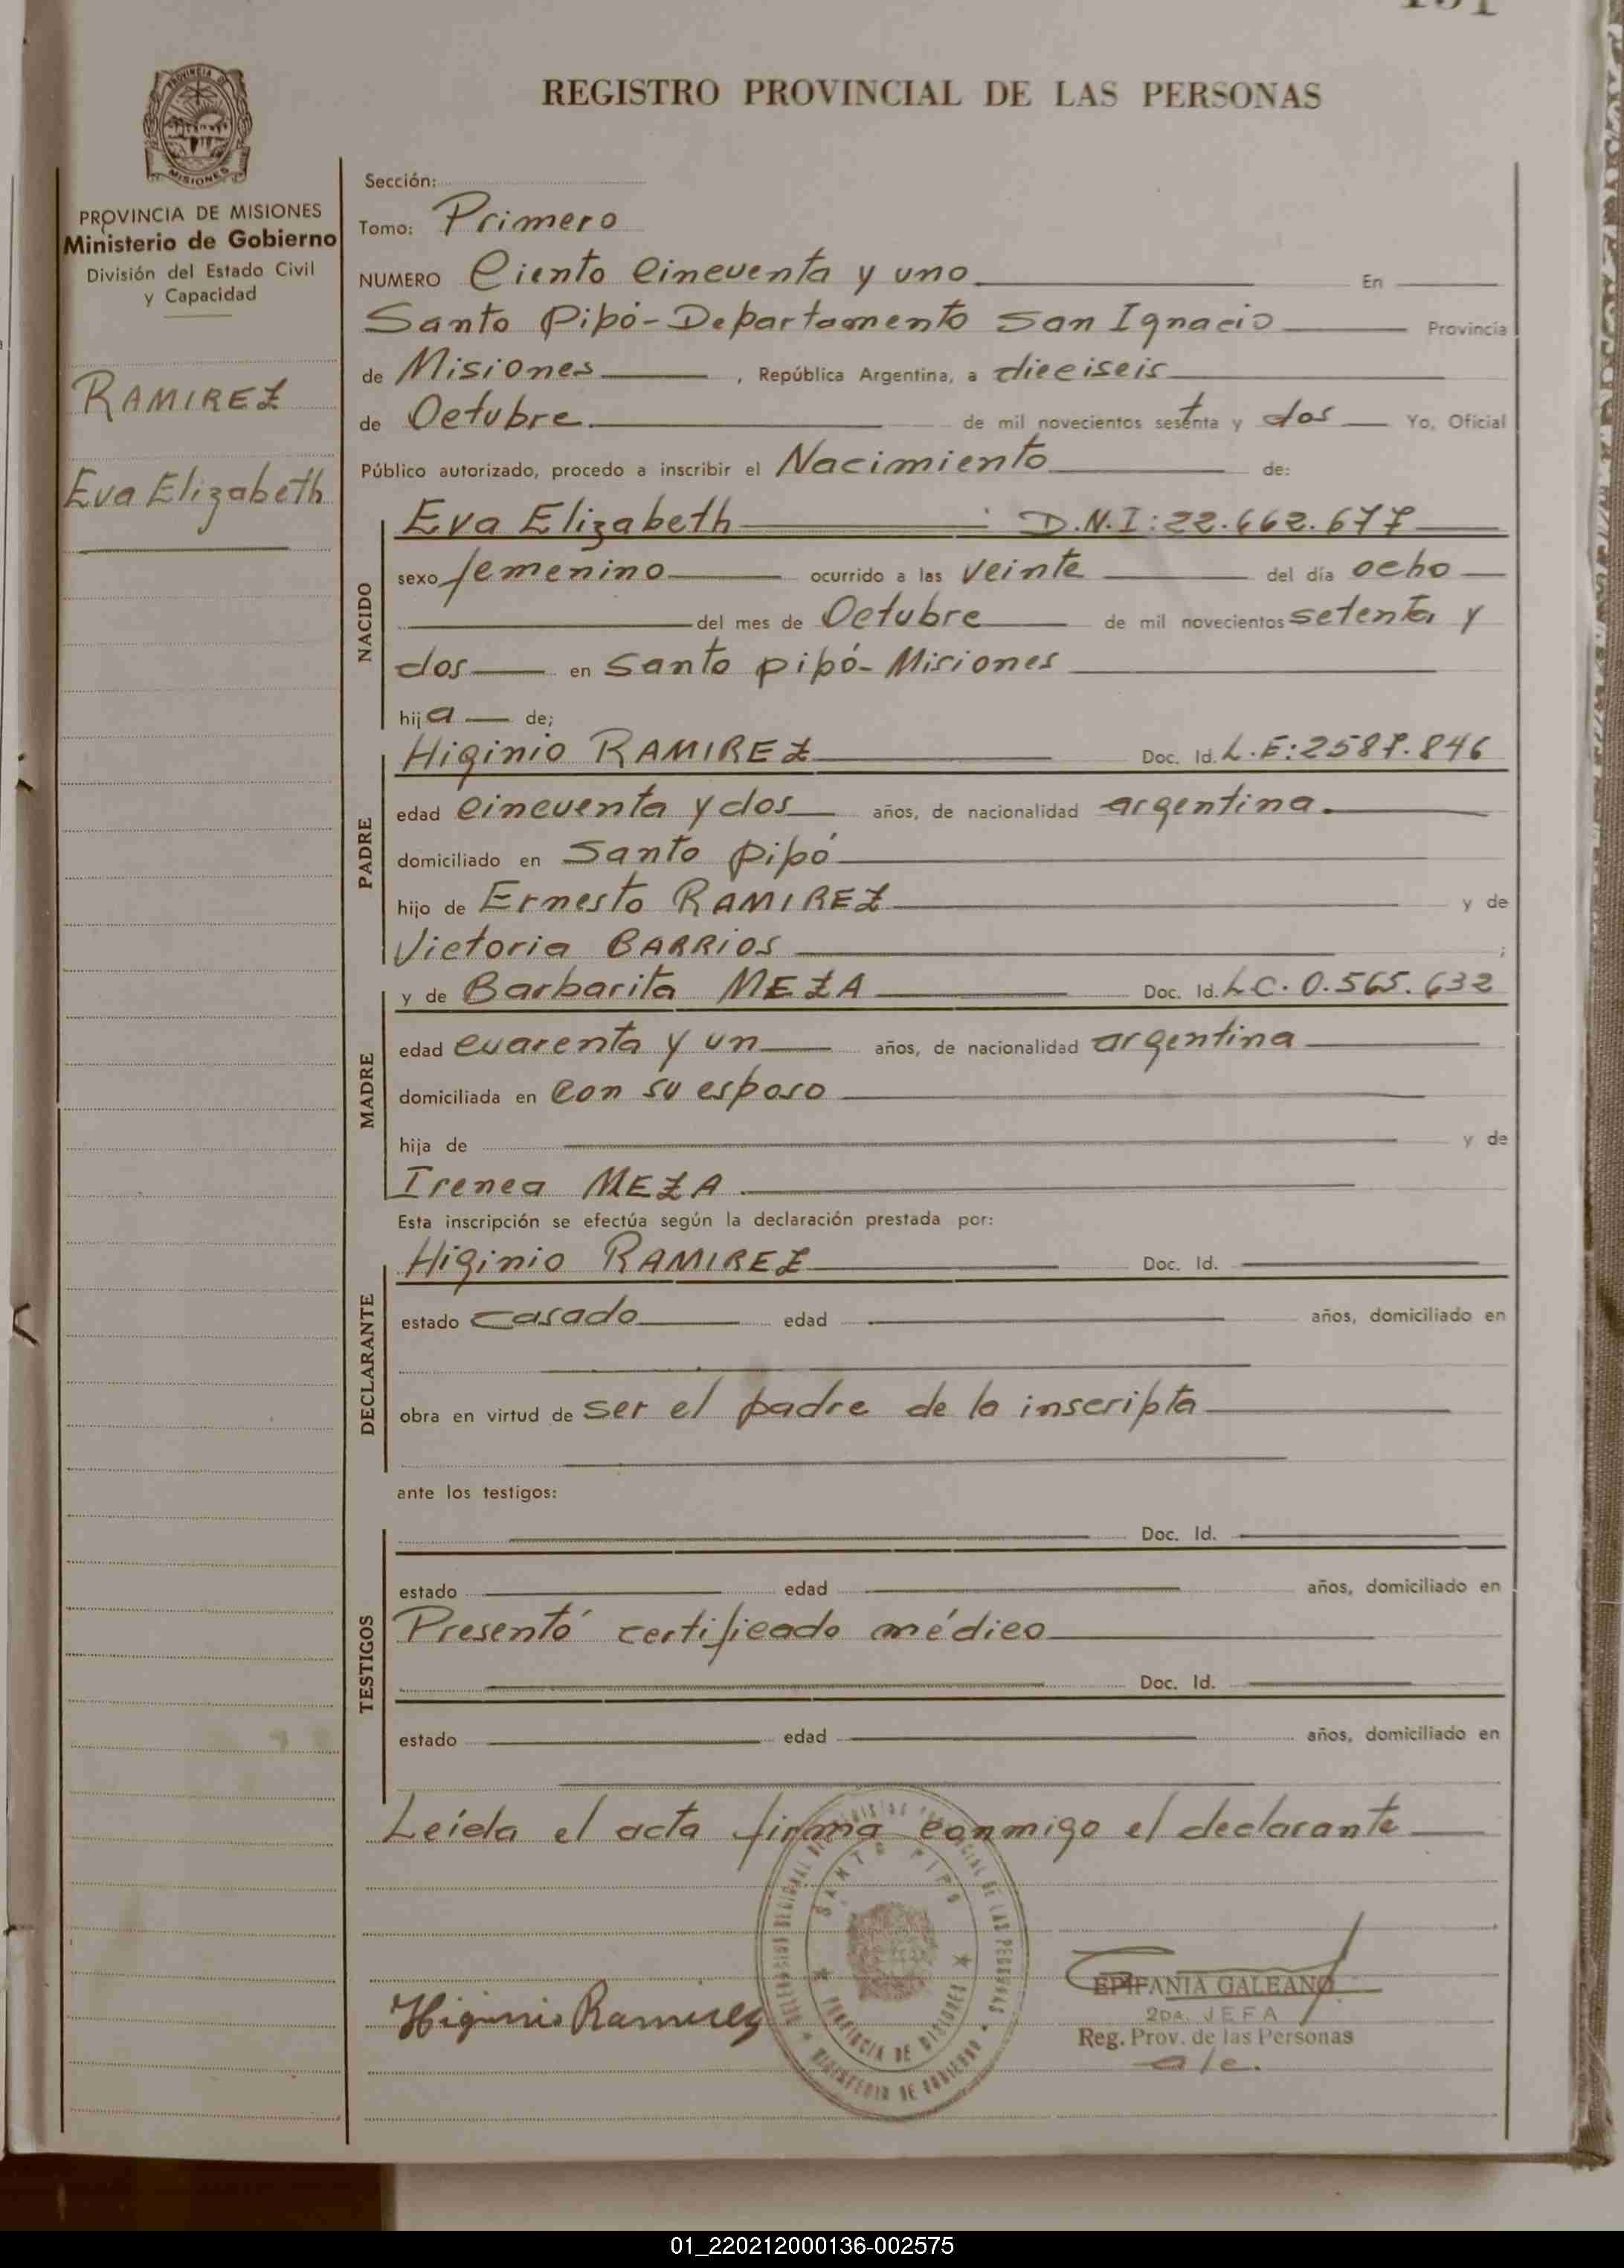 151
REGISTRO PROVINCIAL DE LAS PERSONAS
PROVINCIA DE MISIONES
Ministerio de Gobierno
División del Estado Civil
y Capacidad
RAMIREZ
Eva Elizabeth
Sección:
Tomo: Primero
NUMERO Ciento Cincuenta y uno En
Santo Pipó - Departamento San Ignacio Provincia
de Misiones , República Argentina, a dieciseis
de Octubre. de mil novecientos setenta y dos Yo, Oficial
Público autorizado, procedo a inscribir el Nacimiento de:
NACIDO
Eva Elizabeth D.N.I: 22.662.677
sexo femenino ocurrido a las veinte del día ocho
del mes de Octubre de mil novecientos setenta y
dos en Santo pipó - Misiones
hija de;
PADRE
Higinio RAMIREZ Doc. Id. L.E: 2587.846
edad cincuenta y dos años, de nacionalidad argentina.
domiciliado en Santo Pipó
hijo de Ernesto RAMIREZ y de
Victoria BARRIOS ;
MADRE
y de Barbarita MEZA Doc. Id. L.C. 0.565.632
edad cuarenta y un años, de nacionalidad argentina
domiciliada en con su esposo
hija de y de
Irenea MEZA
Esta inscripción se efectúa según la declaración prestada por:
DECLARANTE
Higinio RAMIREZ Doc. Id.
estado casado edad años, domiciliado en
obra en virtud de ser el padre de la inscripta
ante los testigos:
TESTIGOS
Doc. Id.
estado edad años, domiciliado en
Presentó certificado médico
Doc. Id.
estado edad años, domiciliado en
Leída el acta firma conmigo el declarante
SANTO PIPO
PROVINCIA DE MISIONES
MINISTERIO DE GOBIERNO
Higinio Ramirez
EPIFANIA GALEANO
2DA. JEFA
Reg. Prov. de las Personas
a/c.
01_220212000136-002575